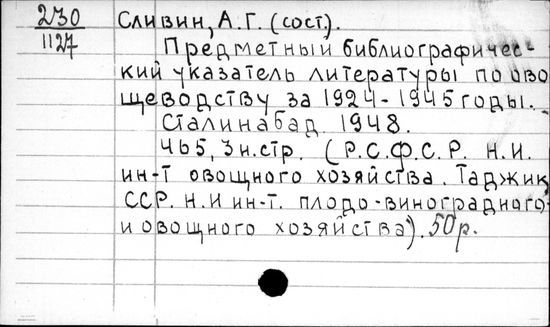 230
1127
Сливин, А.Г. (сост).
Предметный библиографичес-
кий указатель литературы по ово
щеводству за 1924-1945 годы.
Сталинабад 1948.
465, 3 н.стр. (Р.С.Ф.С.Р. Н.И.
ин-т овощного хозяйства. Таджик
ССР. Н.И ин-т. плодо-виноградного-
и овощного хозяйства). 50р.